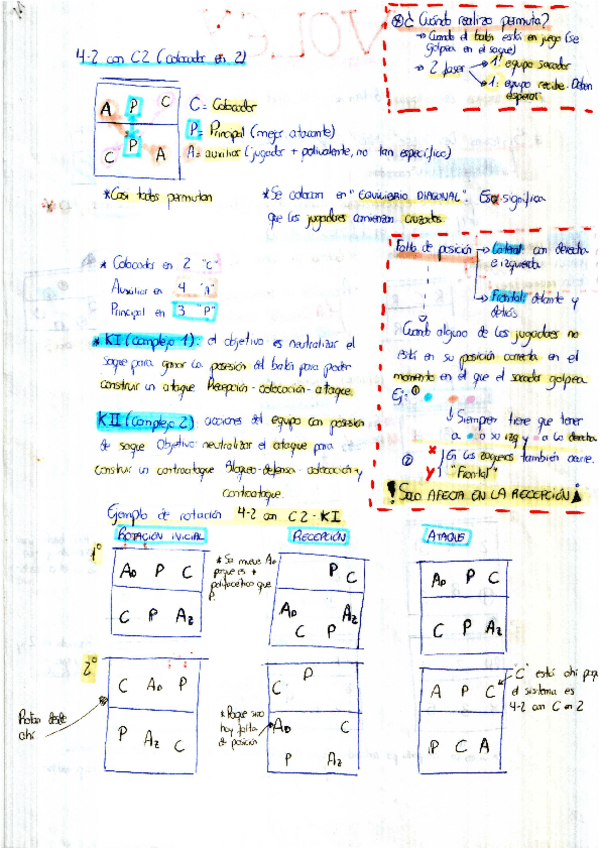 VOLEY
⊛ ¿Cuándo realizo permuta?
→ Cuando el balón está en juego (se
golpea en el saque)
→ 2 fases → 1: equipo sacador
→ 1: equipo recibe. Deben
esperar
4-2 con C2 (colocador en 2)
A P C
C P A
C = Colocador
P = Principal (mejor atacante)
A = auxiliar (jugador + polivalente, no tan específico)
* Casi todos permutan
* Se colocan en "EQUILIBRIO DIAGONAL". Eso significa
que los jugadores comienzan cruzados
* Colocador en 2 "C"
Auxiliar en 4 "A"
Principal en 3 "P"
* KI (complejo 1): el objetivo es neutralizar el
saque para ganar la posesión del balón para poder
construir un ataque Recepción - colocación - ataque.
KII (complejo 2): acciones del equipo con posesión
de saque Objetivo: neutralizar el ataque para
construir un contraataque Bloqueo - defensa - colocación y
contraataque.
Falta de posición → Lateral: con derecha
e izquierda
→ Frontal: delante y
detrás
Cuando alguno de los jugadores no
está en su posición correcta en el
momento en el que el sacador golpea
Ej: ①
↓ Siempre tiene que tener
a izq y a la derecha
② En los zagueros también ocurre.
"Frontal"
! SOLO AFECTA EN LA RECEPCIÓN !
Ejemplo de rotación 4-2 con C2 - KI
ROTACIÓN INICIAL
RECEPCIÓN
ATAQUE
1º
AD P C
C P AZ
* Se mueve AD
porque es +
polifacético que
P.
P C
AD AZ
C P
AD P C
C P AZ
2º
C AD P
P AZ C
Rotan desde
ahí
* Porque sino
hay falta
de posición
C P
AD C
P AZ
A P C
P C A
"C" está ahí porq
el sistema es
4-2 con C en 2